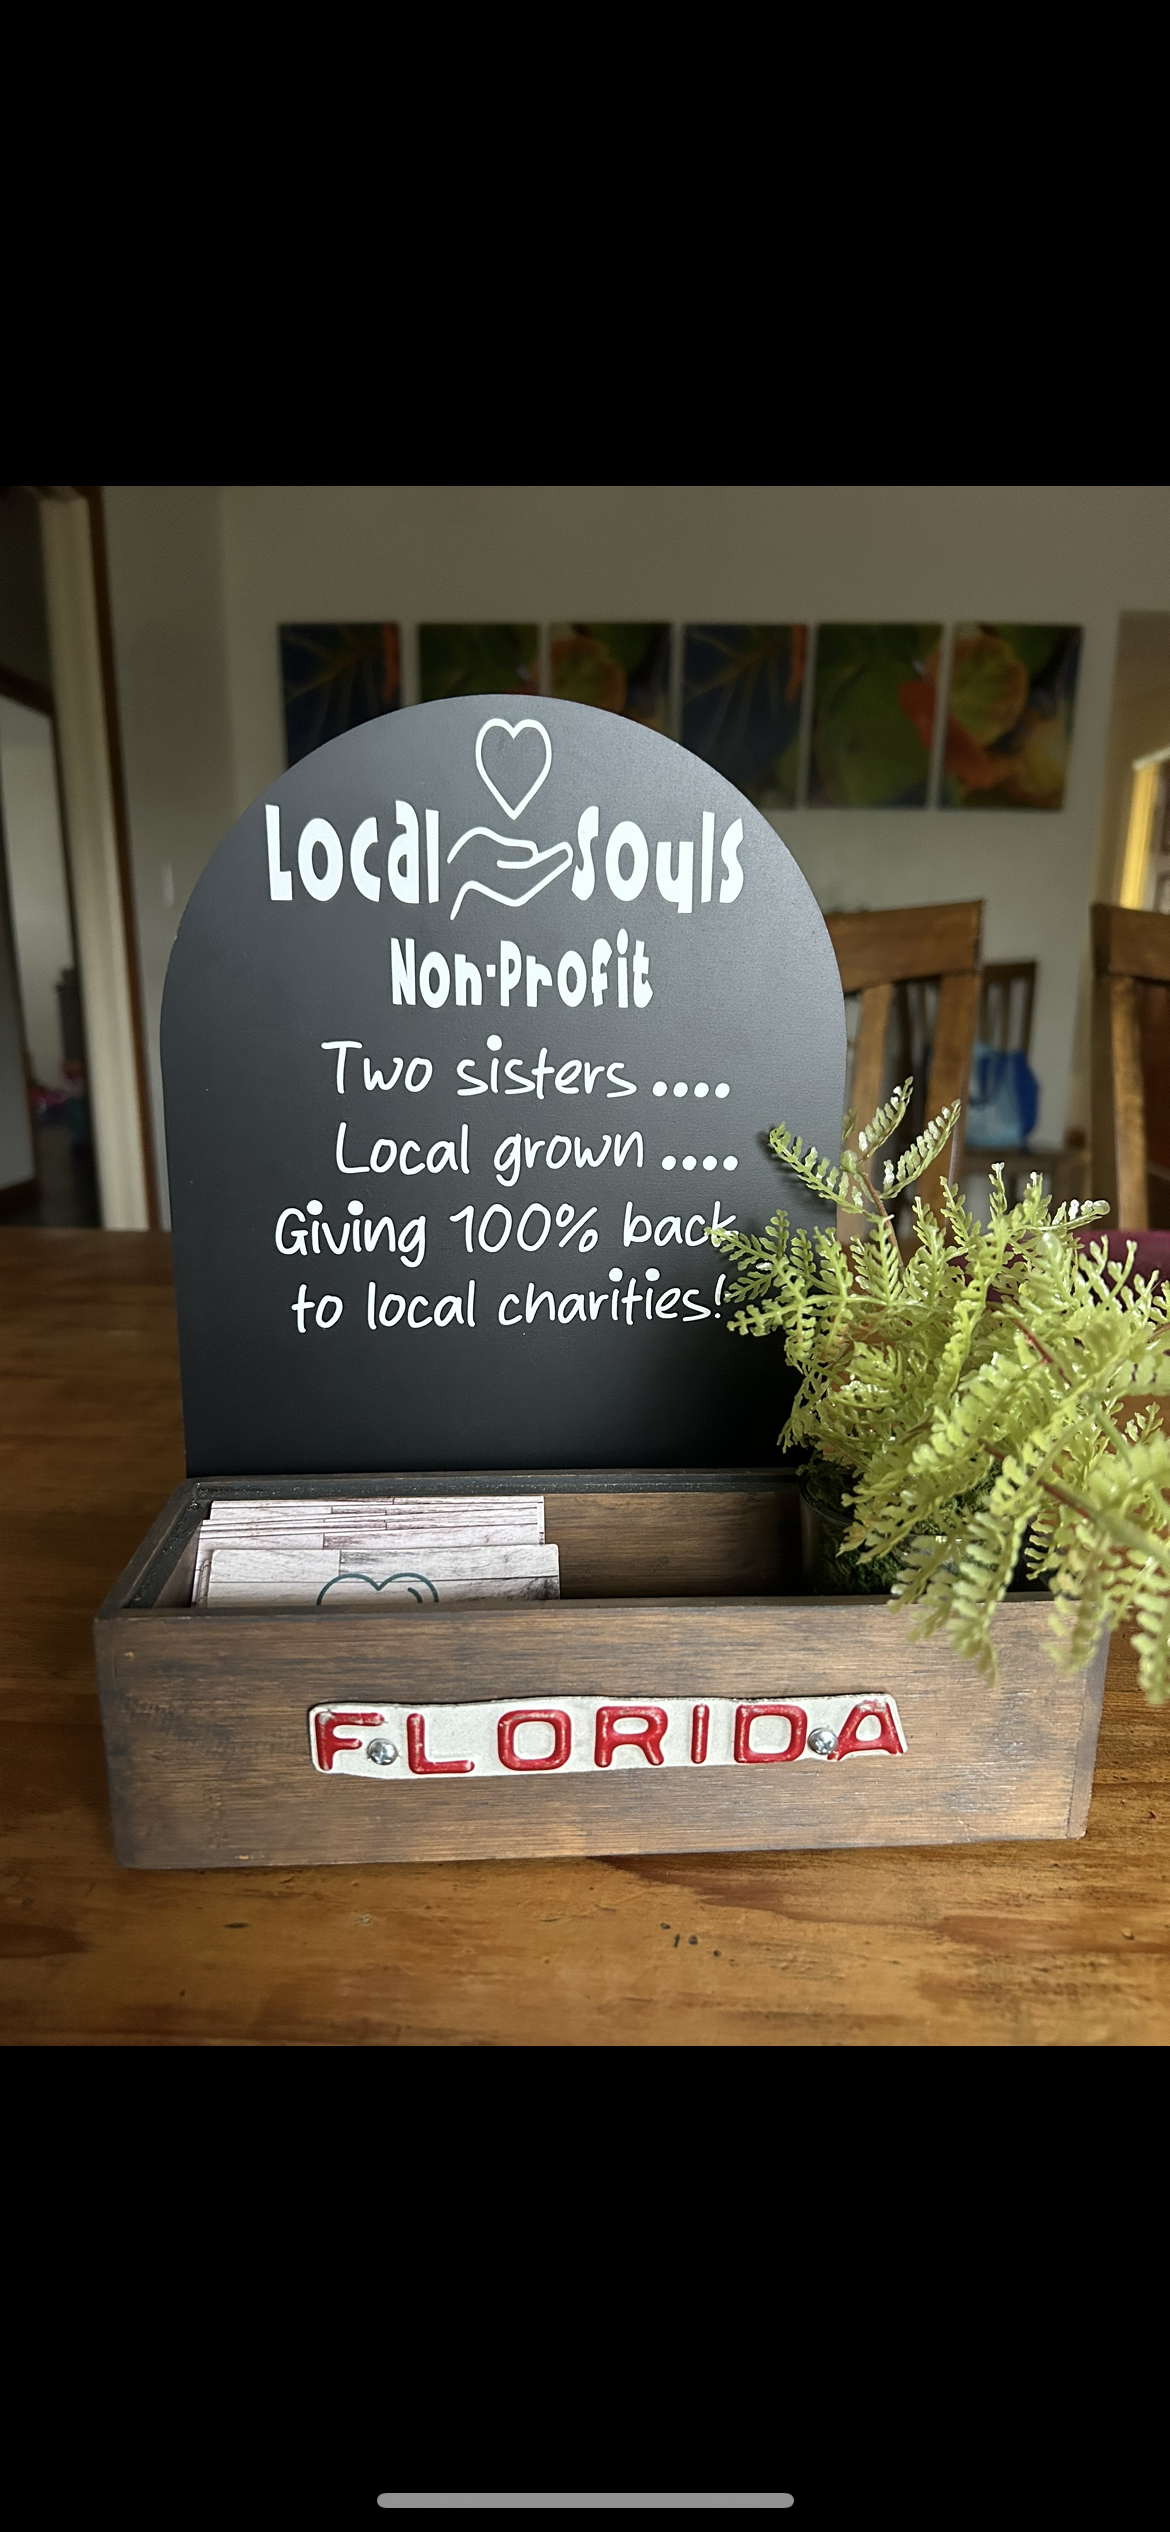 Local Souls
Non-Profit
Two sisters ....
Local grown ....
Giving 100% back
to local charities!
FLORIDA